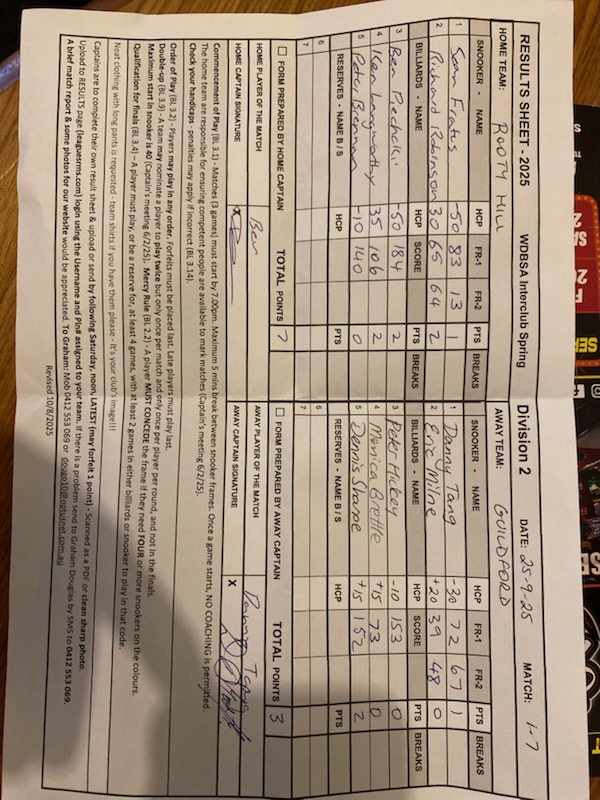 RESULTS SHEET - 2025 WDBSA Interclub Spring Division 2 DATE: 25-9-25 MATCH: 1-7
HOME TEAM: ROOTY HILL AWAY TEAM: GUILDFORD
SNOOKER - NAME HCP FR-1 FR-2 PTS BREAKS SNOOKER - NAME HCP FR-1 FR-2 PTS BREAKS
1 Sean Frates -50 83 13 1 1 Danny Tang -30 72 67 1
2 Richard Robinson 30 65 64 2 2 Eric Milne +20 39 48 0
BILLIARDS - NAME HCP SCORE PTS BREAKS BILLIARDS - NAME HCP SCORE PTS BREAKS
3 Ben Piecholki -50 184 2 3 Peter Hickey -10 153 0
4 Ken Langworthy 35 106 2 4 Monica Brettle +15 73 0
5 Peter Brennan -10 140 0 5 Dennis Sharpe +15 152 2
RESERVES - NAME B / S RESERVES - NAME B / S
6 6
7 7
FORM PREPARED BY HOME CAPTAIN TOTAL POINTS 7 FORM PREPARED BY AWAY CAPTAIN TOTAL POINTS 3
HOME PLAYER OF THE MATCH Ben AWAY PLAYER OF THE MATCH Danny Tang
HOME CAPTAIN SIGNATURE X AWAY CAPTAIN SIGNATURE X
Commencement of Play (BL 3.1) - Matches (3 games) must start by 7.00pm. Maximum 5 mins break between snooker frames. Once a game starts, NO COACHING is permitted.
The home team are responsible for ensuring competent people are available to mark matches (Captain's meeting 6/2/25).
Check your handicaps - penalties may apply if incorrect (BL 3.14).
Order of Play (BL 3.2) - Players may play in any order. Forfeits must be placed last. Late players must play last.
Double-up (BL 3.9) - A team may nominate a player to play twice but only once per match and only once per player per round, and not in the finals.
Maximum start in snooker is 40 (Captain's meeting 6/2/25). Mercy Rule (BL 2.2) - A player MUST CONCEDE the frame if they need FOUR or more snookers on the colours.
Qualification for finals (BL 3.4) – A player must play, or be a reserve for, at least 4 games, with at least 2 games in either billiards or snooker to play in that code.
Neat clothing with long pants is requested - team shirts if you have them please - It's your club's image!!!
Captains are to complete their own result sheet & upload or send by following Saturday, noon, LATEST (may forfeit 1 point) - Scanned as a PDF or clean sharp photo.
Upload to RESULTS page (leaguesrms.com) login using the Username and Pin# assigned to your team. If there is a problem send to Graham Douglas by SMS to 0412 553 069.
A brief match report & some photos for our website would be appreciated. To Graham: Mob 0412 553 069 or dougo10@optusnet.com.au
Revised 10/8/2025